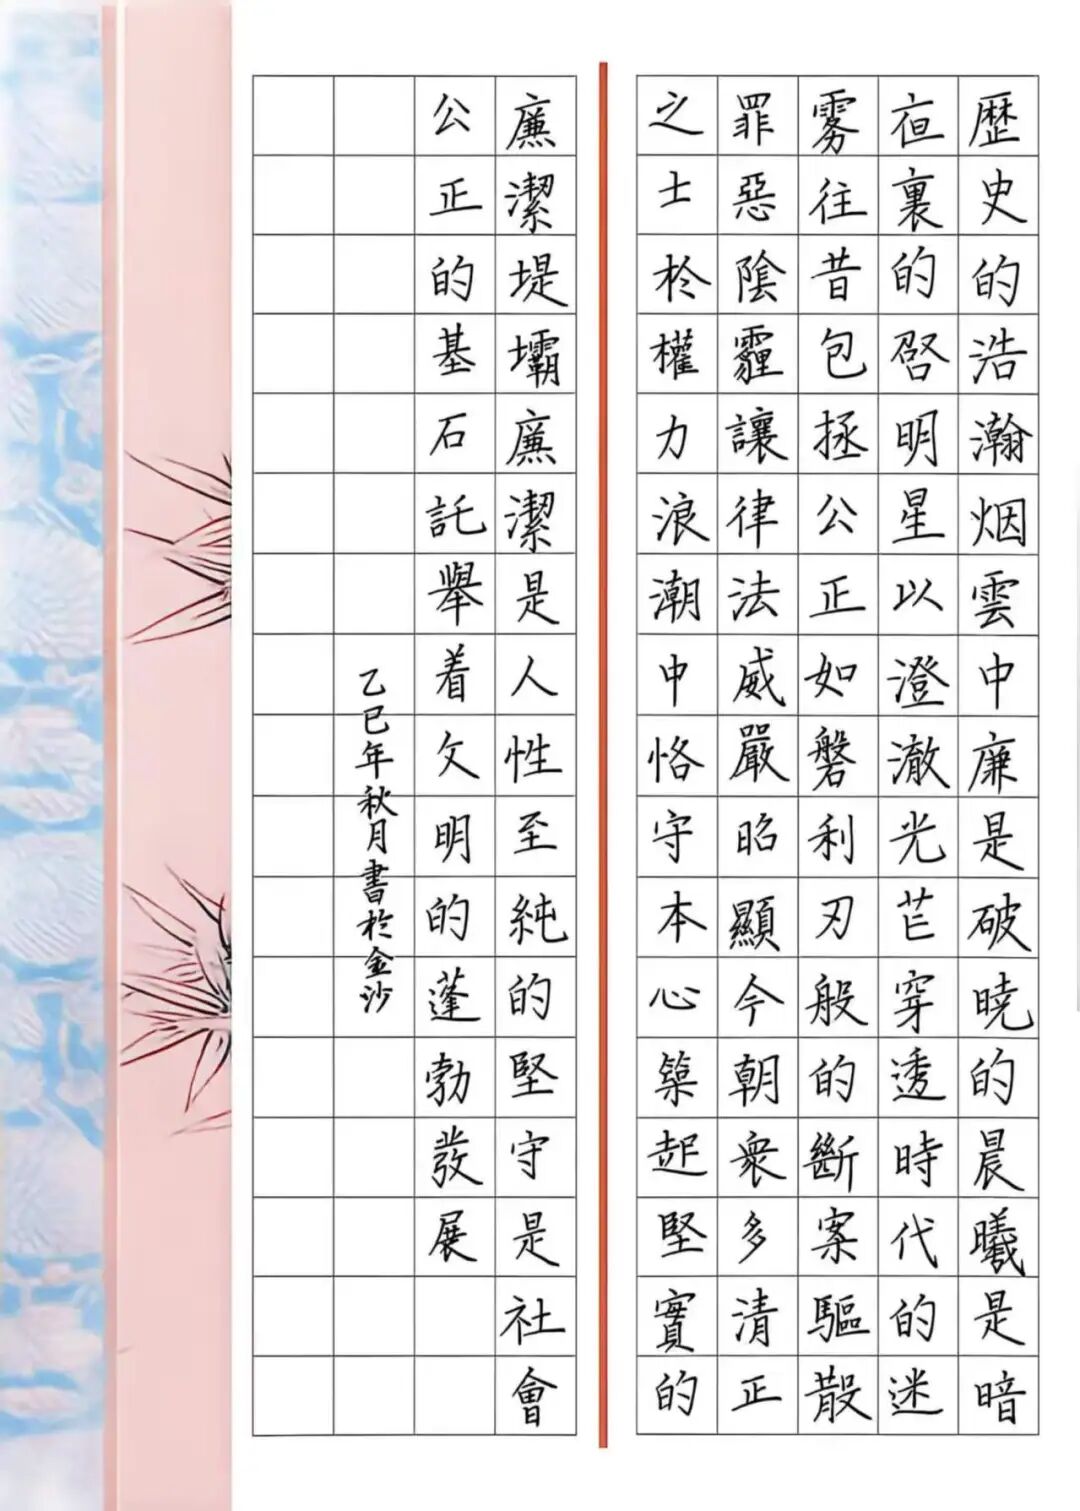 歷史的浩瀚烟雲中廉是破曉的晨曦是暗
夜裏的啓明星以澄澈光芒穿透時代的迷
霧往昔包拯公正如磐利刃般的斷案驅散
罪惡陰霾讓律法威嚴昭顯今朝衆多清正
之士於權力浪潮中恪守本心築起堅實的
廉潔堤壩廉潔是人性至純的堅守是社會
公正的基石託舉着文明的蓬勃發展
乙巳年秋月書於金沙